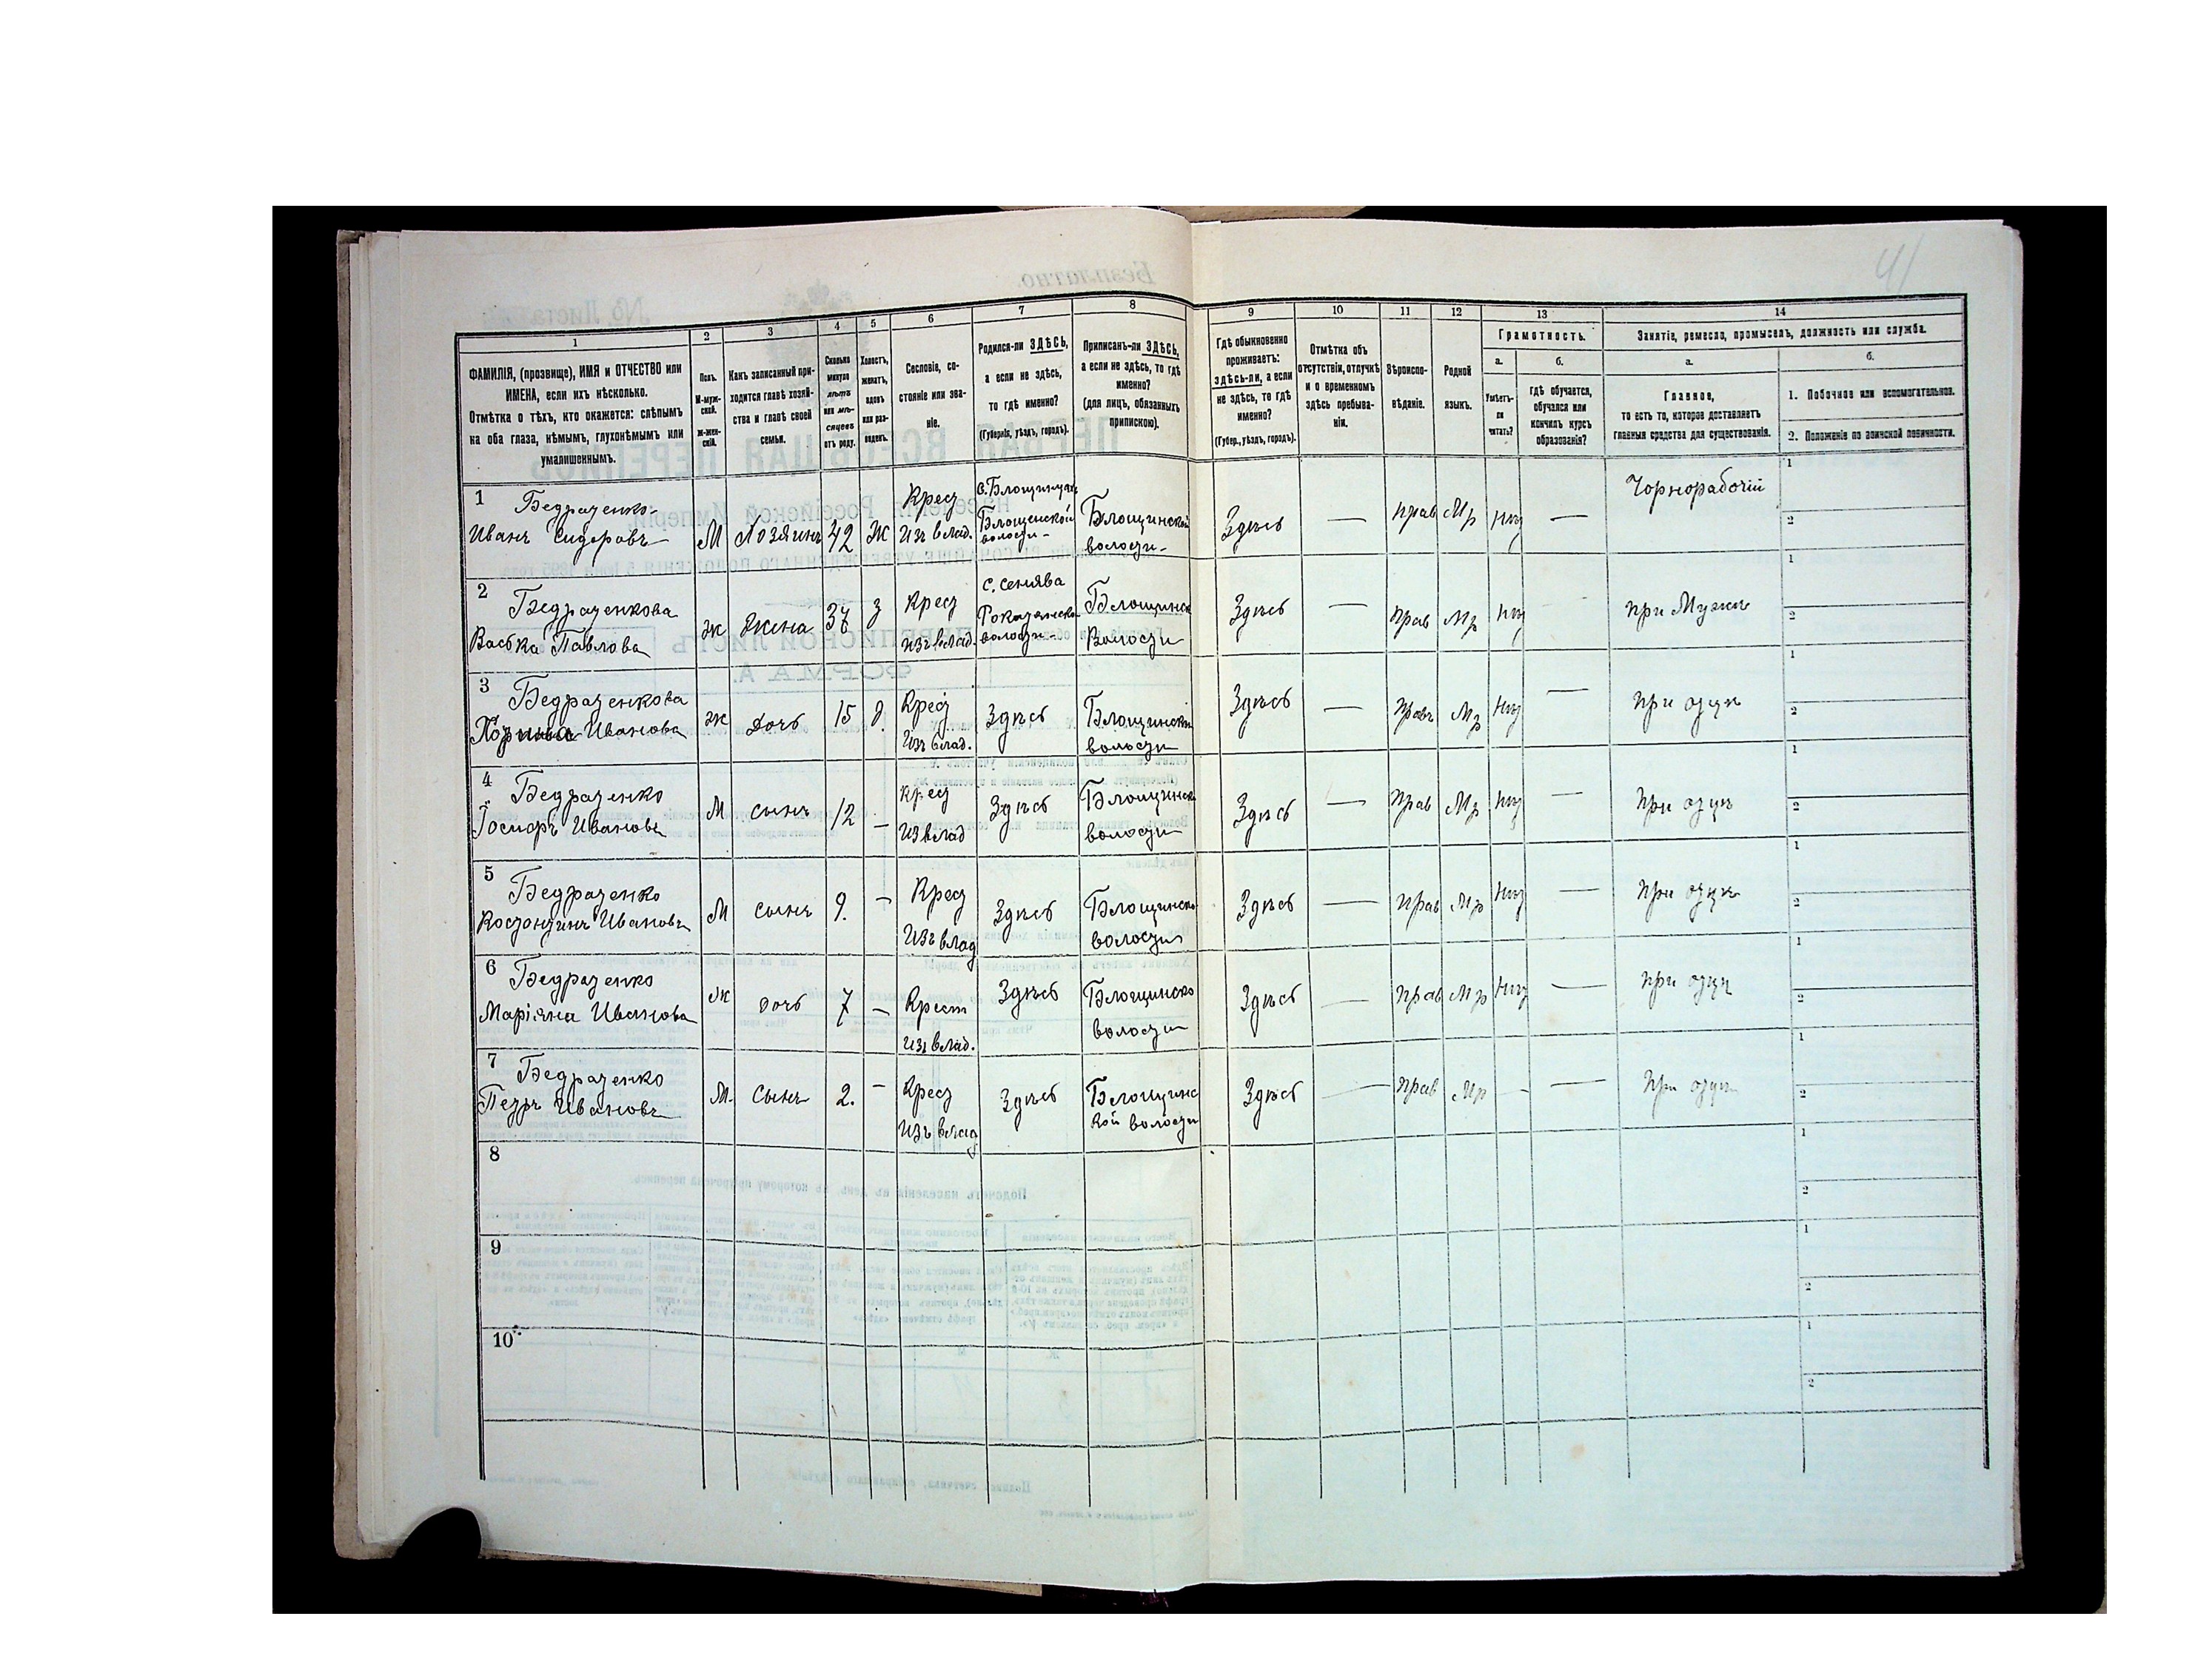 41
1
2
3
4
5
6
7
8
9
10
11
12
13
14
ФАМИЛІЯ, (прозвище), ИМЯ и ОТЧЕСТВО или
ИМЕНА, если ихъ нѣсколько.
Отмѣтка о тѣхъ, кто окажется: слѣпымъ
на оба глаза, нѣмымъ, глухонѣмымъ или
умалишеннымъ.
Полъ.
М-муж-
ской.
Ж-жен-
скій.
Какъ записанный при-
ходится главѣ хозяй-
ства и главѣ своей
семьи.
Сколько
минуло
лѣтъ
или мѣ-
сяцевъ
отъ роду.
Холостъ,
женатъ,
вдовъ
или раз-
веденъ.
Сословіе, со-
стояніе или зва-
ніе.
Родился-ли ЗДѢСЬ,
а если не здѣсь,
то гдѣ именно?
(Губернія, уѣздъ, городъ).
Приписанъ-ли ЗДѢСЬ,
а если не здѣсь, то гдѣ
именно?
(для лицъ, обязанныхъ
припискою).
Гдѣ обыкновенно
проживаетъ:
здѣсь-ли, а если
не здѣсь, то гдѣ
именно?
(Губер., уѣздъ, городъ).
Отмѣтка объ
отсутствіи, отлучкѣ
и о временномъ
здѣсь пребыва-
ніи.
Вѣроиспо-
вѣданіе.
Родной
языкъ.
Грамотность.
а.
б.
Умѣетъ-
ли
читать?
Гдѣ обучается,
обучался или
кончилъ курсъ
образованія?
Занятіе, ремесло, промыселъ, должность или служба.
а.
б.
Главное,
то есть то, которое доставляетъ
главныя средства для существованія.
1. Побочное или вспомогательное.
2. Положеніе по воинской повинности.
1 Бедраченко-
Иванъ Сидоровъ
М Хозяинъ 42 Ж
Крест
изъ влад.
Блощенской
волости-
Блощинской
волости-
Здѣсь — прав Мр нѣт —
Чорнорабочій
1
2
2 Бедраченкова
Васька Павлова
ж жена 37 з
Крест
изъ влад.
с. Сенява
Рокитянской
волости-
Блощинск
Волости
Здѣсь — прав Мр нѣт
при Мужѣ
1
2
3 Бедраченкова
Иванова
ж дочь 15 д.
Крест
Изъ влад.
Здѣсь
Блощинской
волости
Здѣсь — Правъ Мр Нѣт —
при отцѣ
1
2
4 Бедраченко
Ивановъ
М сынъ 12 —
крест
из влад
Здѣсь
Блощинск
волости
Здѣсь — Прав Мр нѣт —
при отцѣ
1
2
5 Бедраченко
Костонтинъ Ивановъ
М сынъ 9. —
Крест
Изъ влад
Здѣсь
Блощинско
волости
Здѣсь — прав Мр Нѣт —
при отцѣ
1
2
6 Бедраченко
Маріяна Иванова
ж дочь 7 —
Крест
изъ влад.
Здѣсь
Блощинско
волости
Здѣсь — прав Мр Нѣт —
при отцѣ
1
2
7 Бедраченко
Петръ Ивановъ
М. Сынъ 2. —
Крест
изъ влад
Здѣсь
Блощинс
кой волости
Здѣсь — прав Мр — —
при отцѣ
1
2
8
1
2
9
1
2
10
1
2